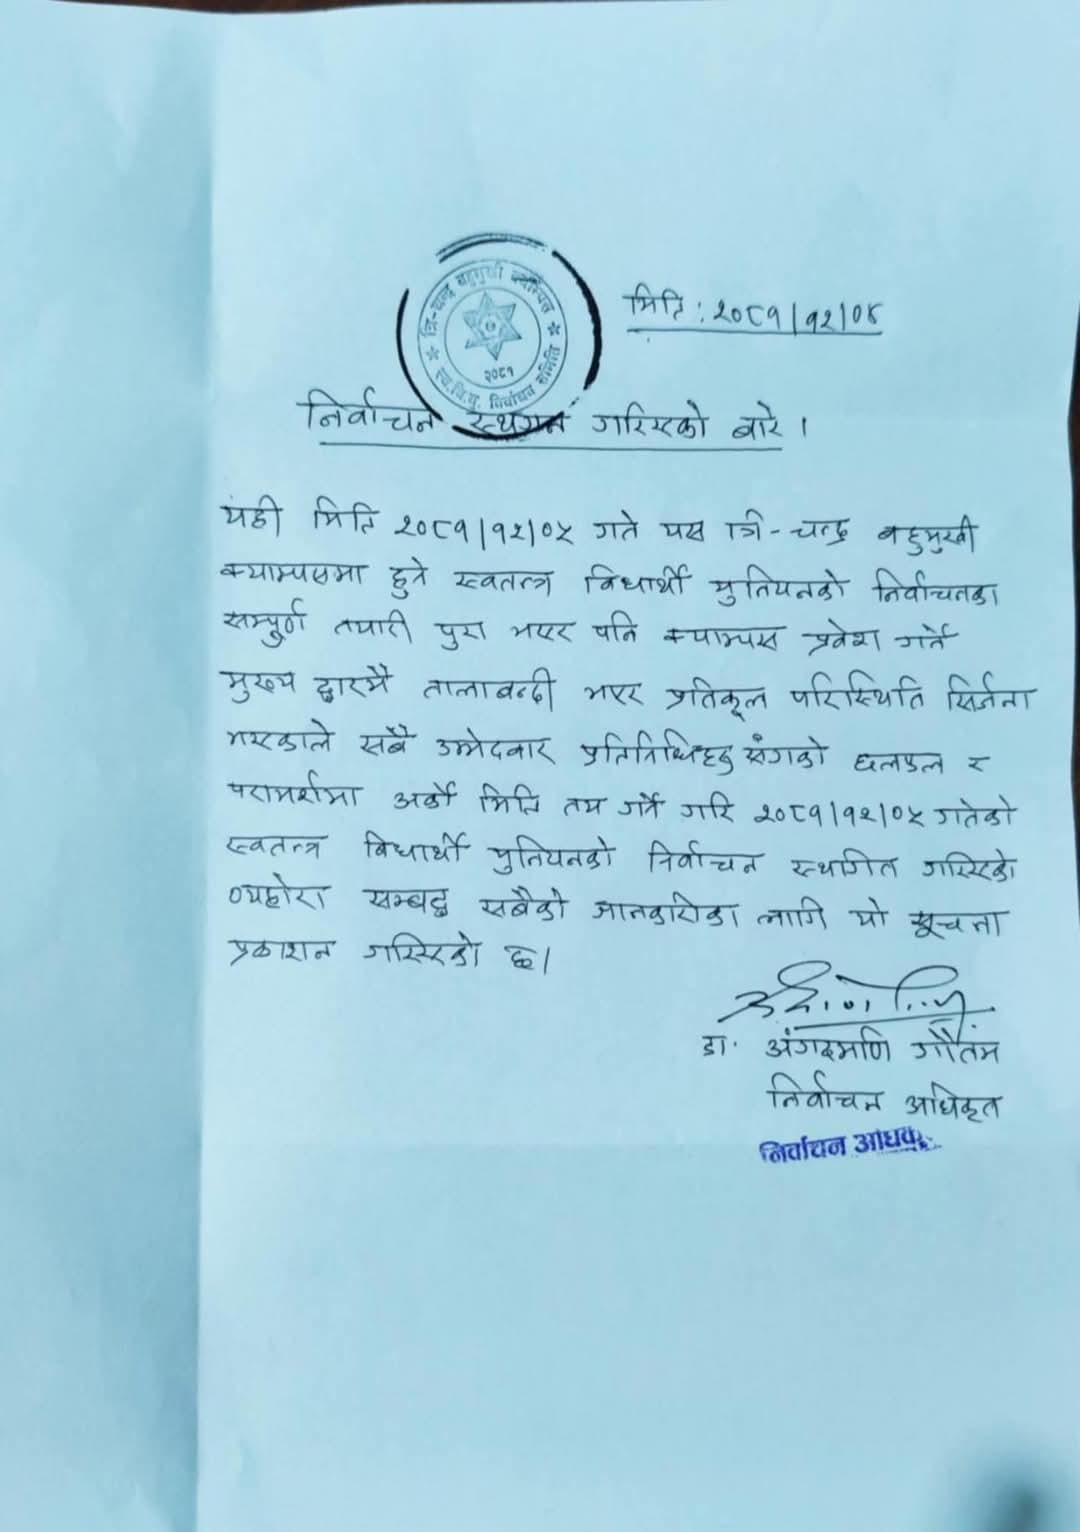 त्रि-चन्द्र बहुमुखी क्याम्पस
२०८१
स्व.वि.यू. निर्वाचन समिति
मिति : २०८१/१२/०४
निर्वाचन स्थगन गरिएको बारे ।
यही मिति २०८१/१२/०५ गते यस त्रि-चन्द्र बहुमुखी
क्याम्पसमा हुने स्वतन्त्र विधार्थी युनियनको निर्वाचनका
सम्पुर्ण तयारी पुरा भएर पनि क्याम्पस प्रवेश गर्ने
मुख्य द्वारमै तालाबन्दी भएर प्रतिकूल परिस्थिति सिर्जना
भएकाले सबै उम्मेदवार प्रतिनिधिहरु सँगको छलफल र
परामर्शमा अर्को मिति तय गर्ने गरि २०८१/१२/०५ गतेको
स्वतन्त्र विधार्थी युनियनको निर्वाचन स्थगित गरिएको
व्यहोरा सम्बद्ध सबैको जानकारीका लागि यो सूचना
प्रकाशन गरिएको छ।
डा. अंगदमणि गौतम
निर्वाचन अधिकृत
निर्वाचन